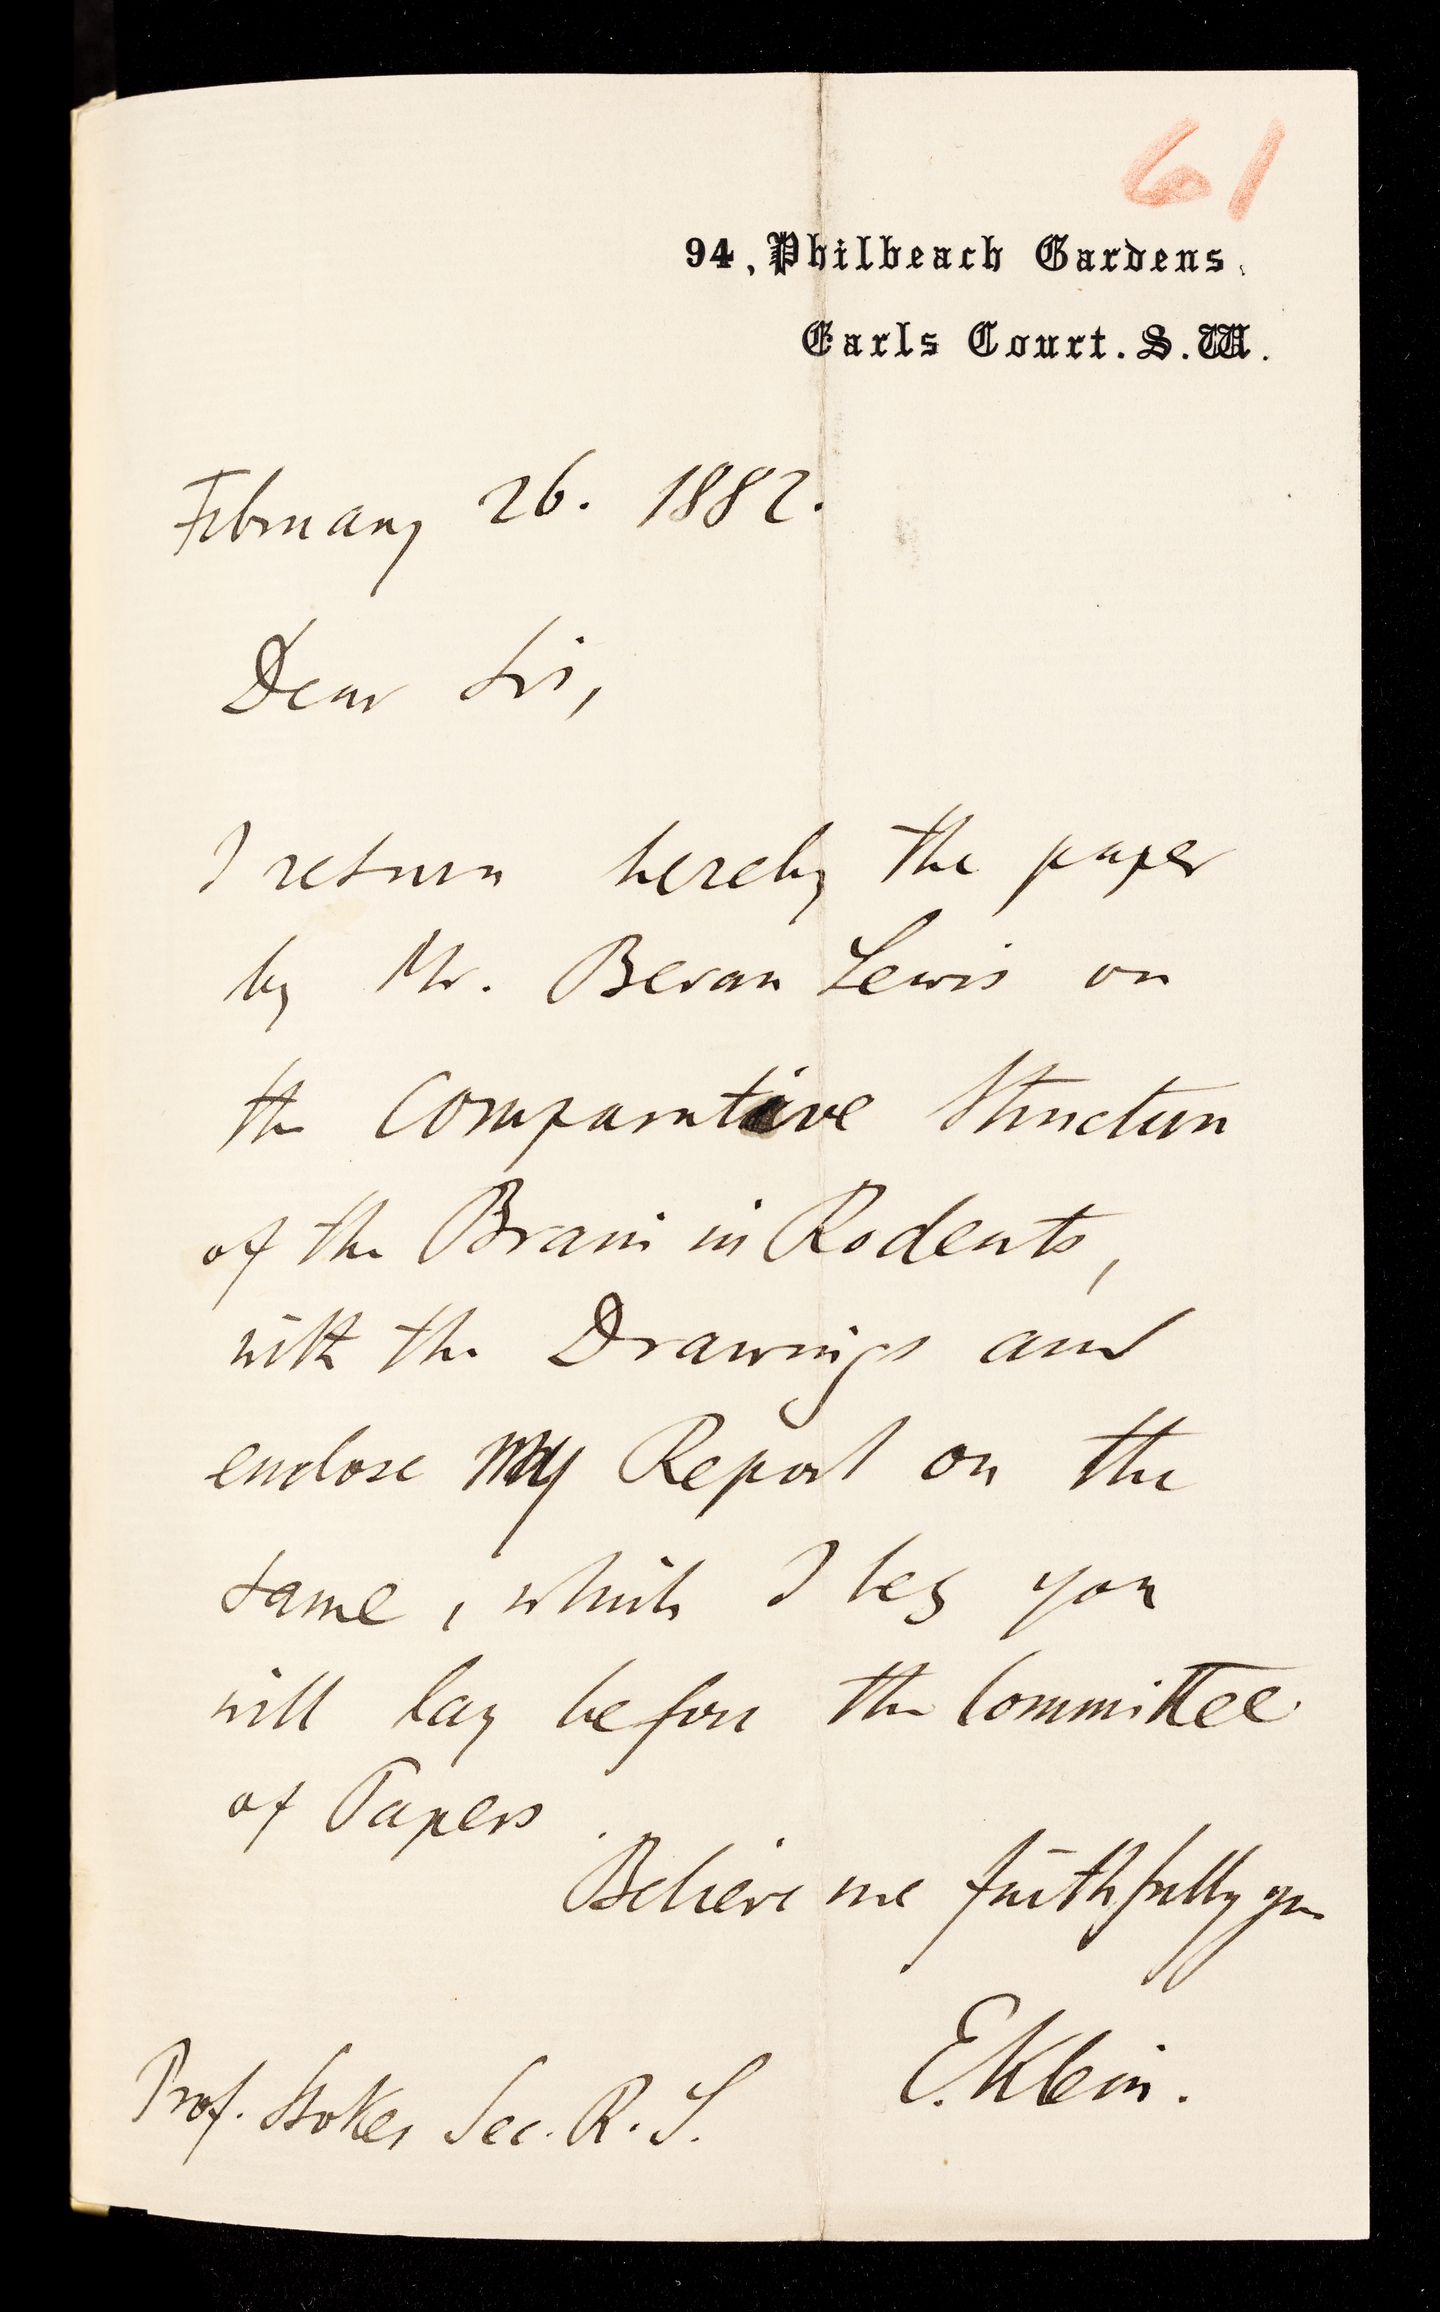 61
94, Philbeach Gardens,
Earls Court. S.W.
February 26. 1882.
Dear Sir,
I return hereby the paper
by Mr. Bevan Lewis on
the Comparative Structure
of the Brain in Rodents,
with the Drawings and
enclose my Report on the
same, which I beg you
will lay before the Committee
of Papers.
Believe me faithfully yrs
E. Klein.
Prof. Stokes Sec. R. S.